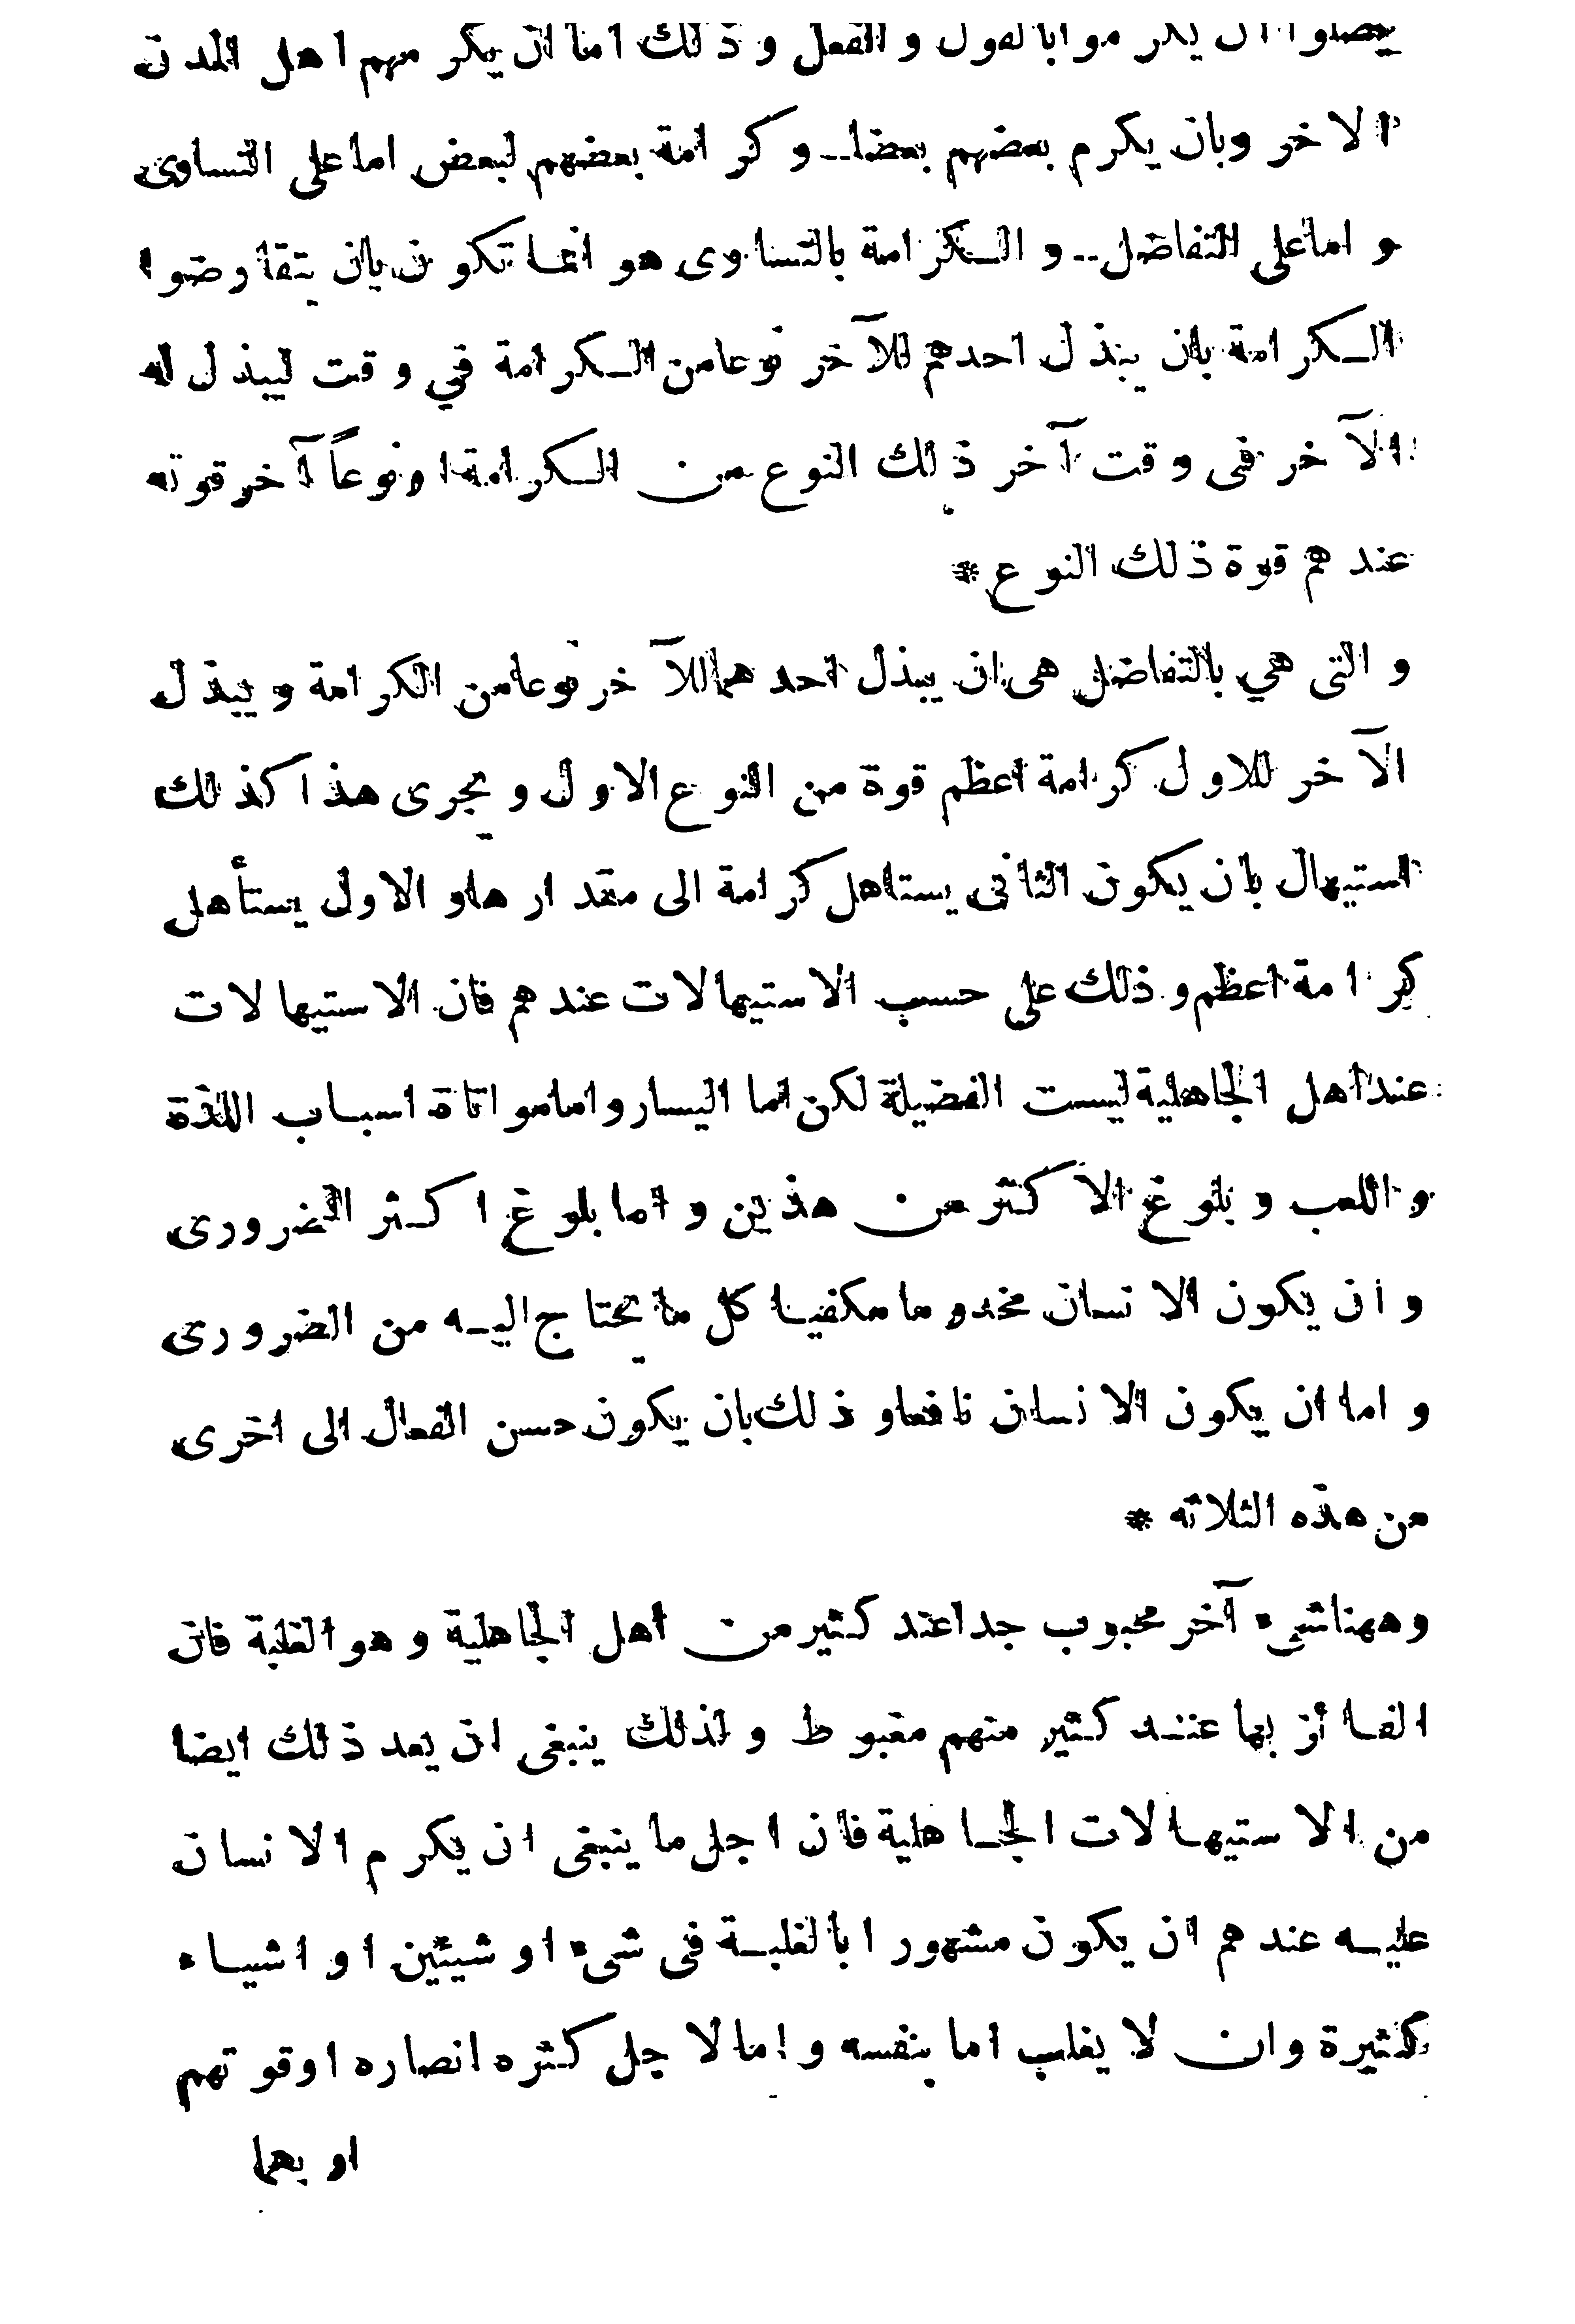 يصلوا ان يكرموا بالقول والفعل وذلك اما ان يكرمهم اهل المدن
الاخر وبان يكرم بعضهم بعضا‐‐ وكرامة بعضهم لبعض اما على التساوى
واما على التفاضل‐‐ والكرامة بالتساوى هو انما تكون بان يتقارضوا
الكرامة بان يبذل احدهم للآخر نوعا من الكرامة في وقت ليبذل له
الآخر فى وقت آخر ذلك النوع من الكرامة او نوعاً آخر قوته
عندهم قوة ذلك النوع *
والتى هي بالتفاضل هى ان يبذل احدهما للآخر نوعا من الكرامة ويبذل
الآخر للاول كرامة اعظم قوة من النوع الاول ويجرى هذا كذلك
استيهال بان يكون الثانى يستاهل كرامة الى مقدار ها والاول يستأهل
كرامة اعظم وذلك على حسب الاستيهالات عندهم فان الاستيهالات
عند اهل الجاهلية ليست الفضيلة لكن اما اليسار واما مواتاة اسباب اللذة
واللعب وبلوغ الاكثر من هذين واما بلوغ اكثر الضرورى
وان يكون الانسان مخدوما مكفيا كل ما يحتاج اليه من الضرورى
واما ان يكون الانسان نافعا وذلك بان يكون حسن الفعال الى اخرى
من هذه الثلاثه *
وههنا شىء آخر محبوب جدا عند كثير من اهل الجاهلية وهو الغلبة فان
الفائز بها عند كثير منهم مغبوط ولذلك ينبغى ان يعد ذلك ايضا
من الاستيهالات الجاهلية فان اجل ما ينبغى ان يكرم الانسان
عليه عندهم ان يكون مشهورا بالغلبة فى شىء او شيئين او اشياء
كثيرة وان لا يغلب اما بنفسه واما لاجل كثره انصاره او قوتهم
او بهما